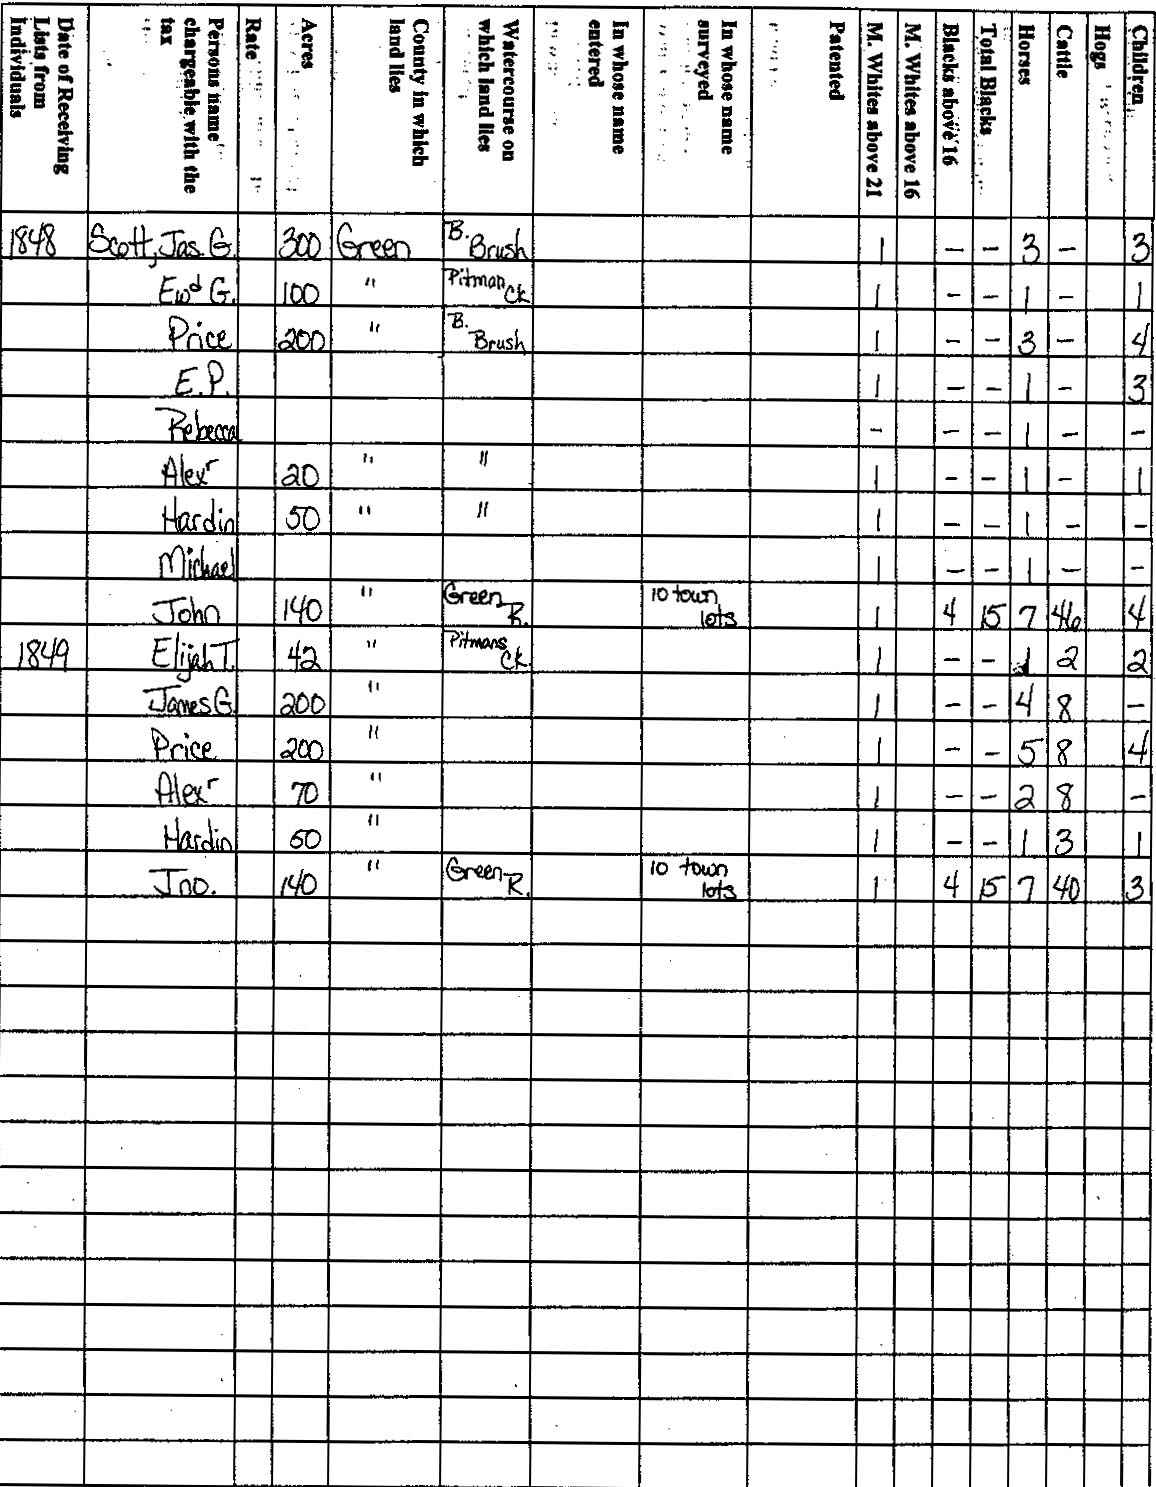 Date of Receiving Lists from Individuals
Persons name chargeable with the tax
Rate
Acres
County in which land lies
Watercourse on which land lies
In whose name entered
In whose name surveyed
Patented
M. Whites above 21
M. Whites above 16
Blacks above 16
Total Blacks
Horses
Cattle
Hogs
Children
1848 Scott, Jas. G. 300 Green B. Brush 1 – – 3 – 3
Ewd G. 100 " Pitman Ck 1 – – 1 – 1
Price 200 " B. Brush 1 – – 3 – 4
E.P. 1 – – 1 – 3
Rebecca – – – 1 – –
Alexr 20 " " 1 – – 1 – 1
Hardin 50 " " 1 – – 1 – –
Michael 1 – – 1 – –
John 140 " Green R. 10 town lots 1 4 15 7 46 4
1849 Elijah T. 42 " Pitmans Ck. 1 – – 1 2 2
James G. 200 " 1 – – 4 8 –
Price 200 " 1 – – 5 8 4
Alexr 70 " 1 – – 2 8 –
Hardin 50 " 1 – – 1 3 1
Jno. 140 " Green R. 10 town lots 1 4 15 7 40 3